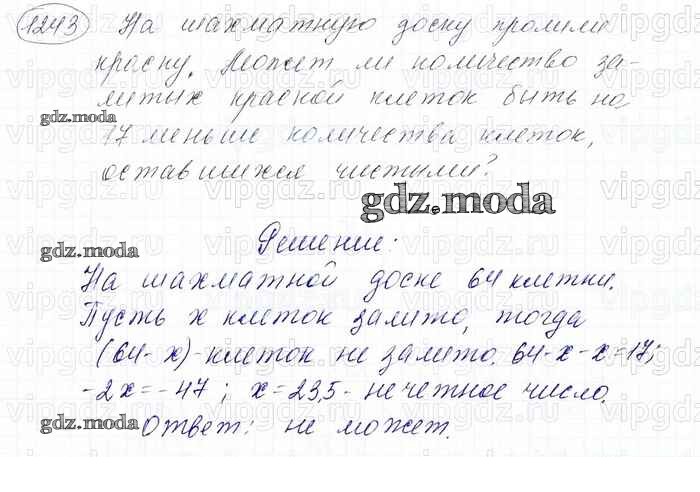 1243 На шахматную доску пролили
краску. Может ли количество за-
литых краской клеток быть на
gdz.moda
17 меньше количества клеток,
оставшихся чистыми?
gdz.moda
Решение:
gdz.moda
На шахматной доске 64 клетки.
Пусть х клеток залито, тогда
(64-х)-клеток не залито. 64-х-х=17;
-2х=-47; х=23,5- нечетное число.
gdz.moda
Ответ: не может.